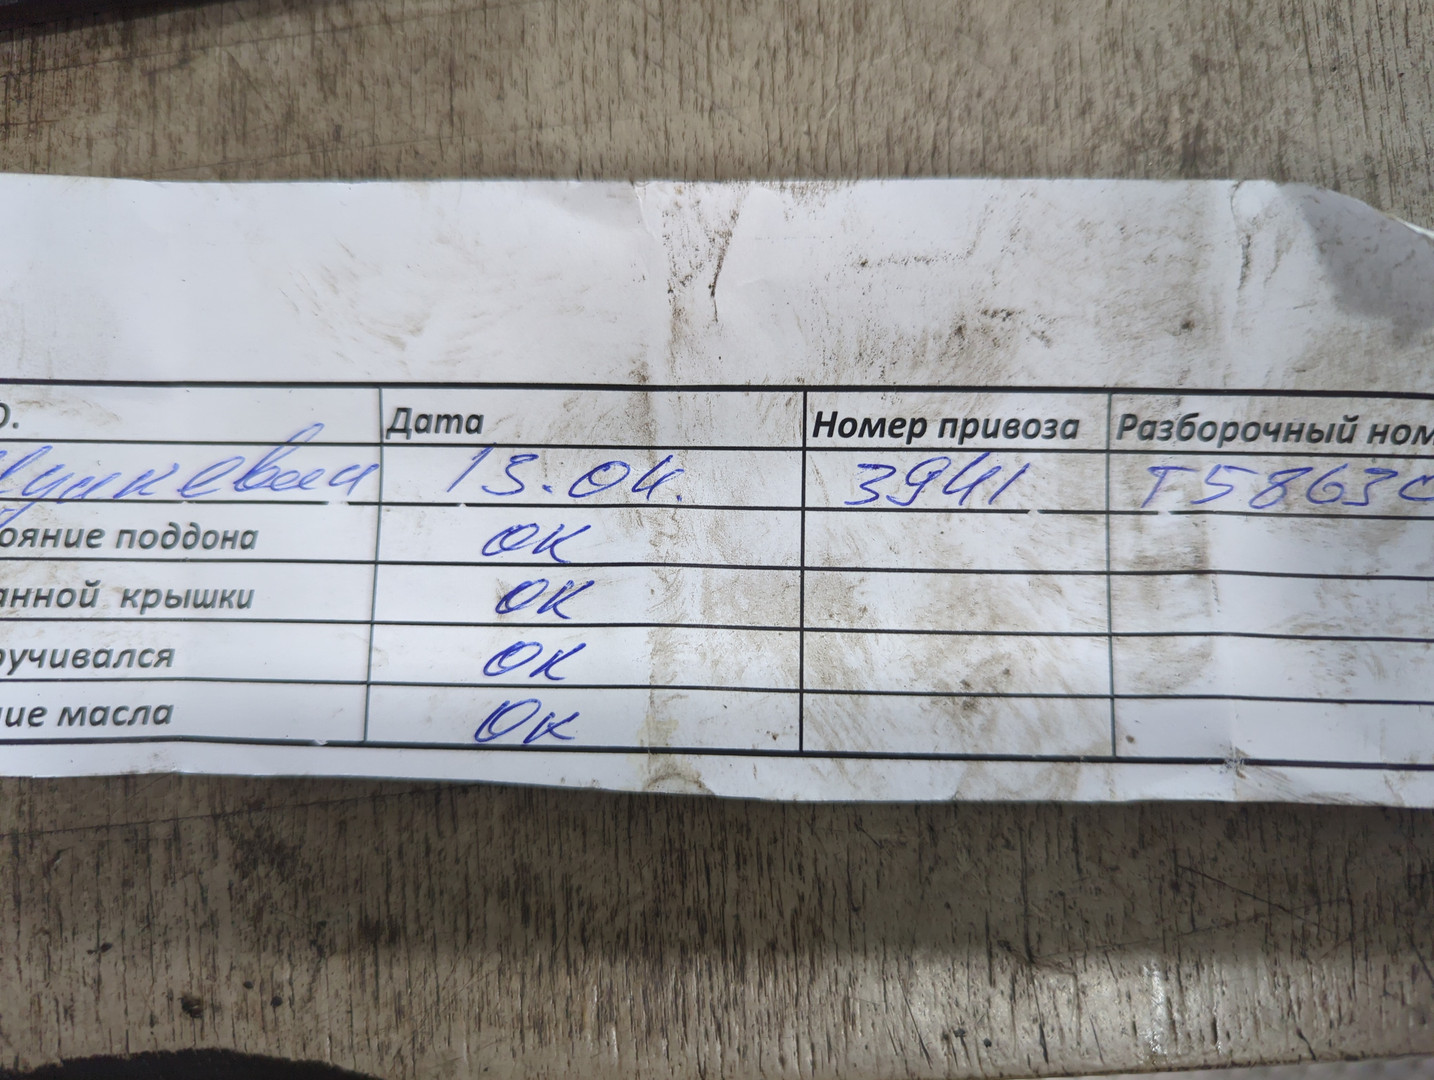 О. Дата Номер привоза Разборочный ном
13.04. 3941 T58630
ояние поддона ОК
анной крышки ОК
ручивался ОК
ие масла ОК